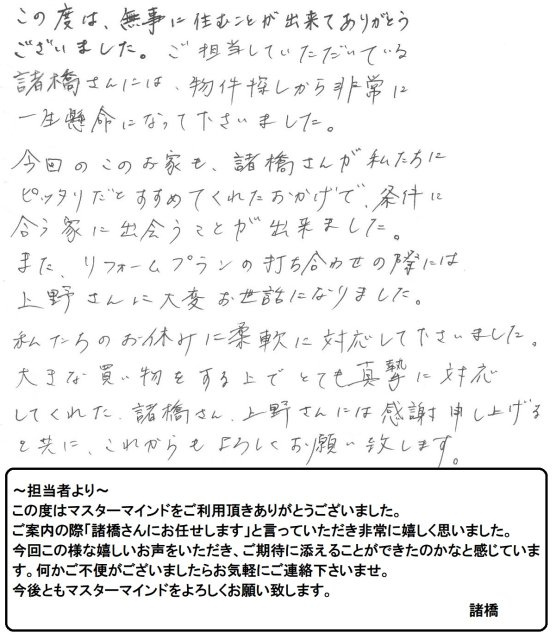 この度は、無事に住むことが出来てありがとう
ございました。ご担当していただいている
諸橋さんには、物件探しから非常に
一生懸命になって下さいました。
今回のこのお家も、諸橋さんが私たちに
ピッタリだとすすめてくれたおかげで、条件に
合う家に出会うことが出来ました。
また、リフォームプランの打ち合わせの際には
上野さんに大変お世話になりました。
私たちのお休みに柔軟に対応して下さいました。
大きな買い物をする上でとても真摯に対応
してくれた、諸橋さん、上野さんには感謝申し上げる
と共に、これからもよろしくお願い致します。
～担当者より～
この度はマスターマインドをご利用頂きありがとうございました。
ご案内の際「諸橋さんにお任せします」と言っていただき非常に嬉しく思いました。
今回この様な嬉しいお声をいただき、ご期待に添えることができたのかなと感じていま
す。何かご不便がございましたらお気軽にご連絡下さいませ。
今後ともマスターマインドをよろしくお願い致します。
諸橋